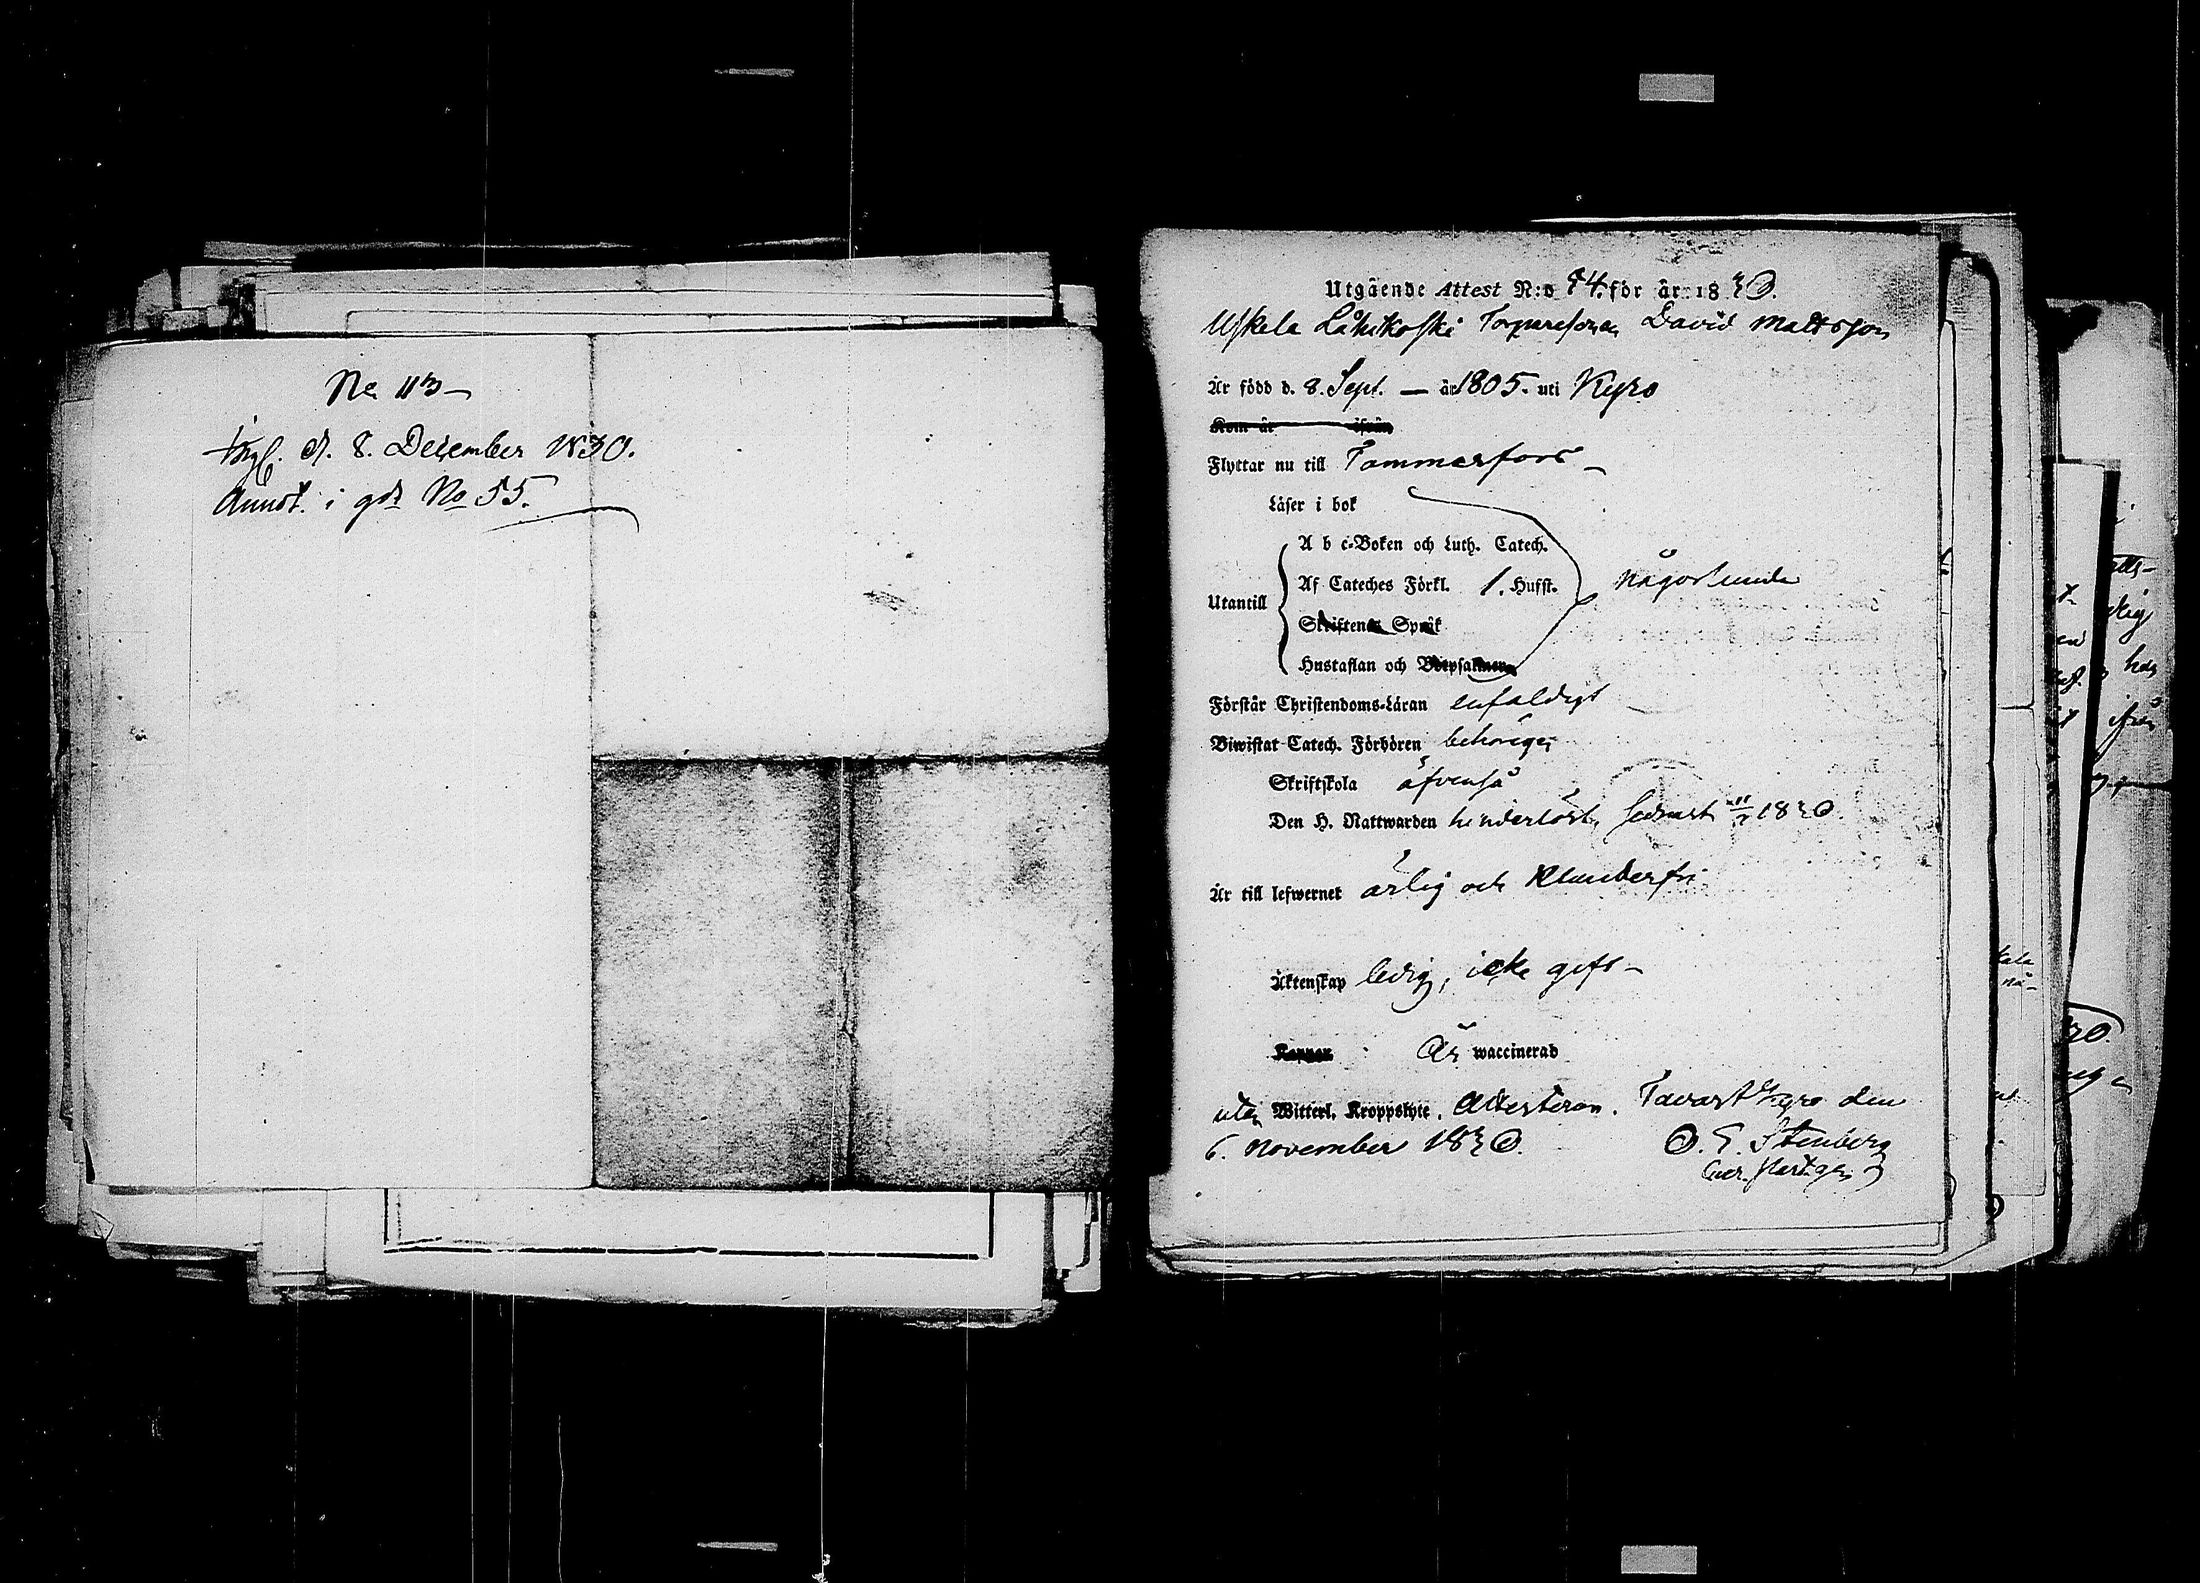 No 113
d. 8. December 1830.
Annot. i gdr No 55.
Utgående Attest N:o 74. för år 1830.
Uskela Lähikoski Torparesonen David Mattsson
Är född d. 8. Sept. — år 1805. uti Kyro
Kom år ifrån
Flyttar nu till Tammerfors
Läser i bok
A b c-Boken och Luth. Catech.
Af Cateches Förkl. 1. Hufst. någorlunda
Utantill
Skriftenes Språk
Hustaflan och Botpsalmerna
Förstår Christendoms-Läran enfaldigt
Biwistat Catech. Förhören behörigen
Skriftskola äfvenså
Den H. Nattwarden hinderlöst, sednast 1830.
Är till lefwernet ärlig och klanderfri
Äktenskap ledig, icke gift
Koppor Är waccinerad
utan Witterl. Kroppslyte, Attesteras. Tavastkyro den
6. November 1830. O. E. Stenberg